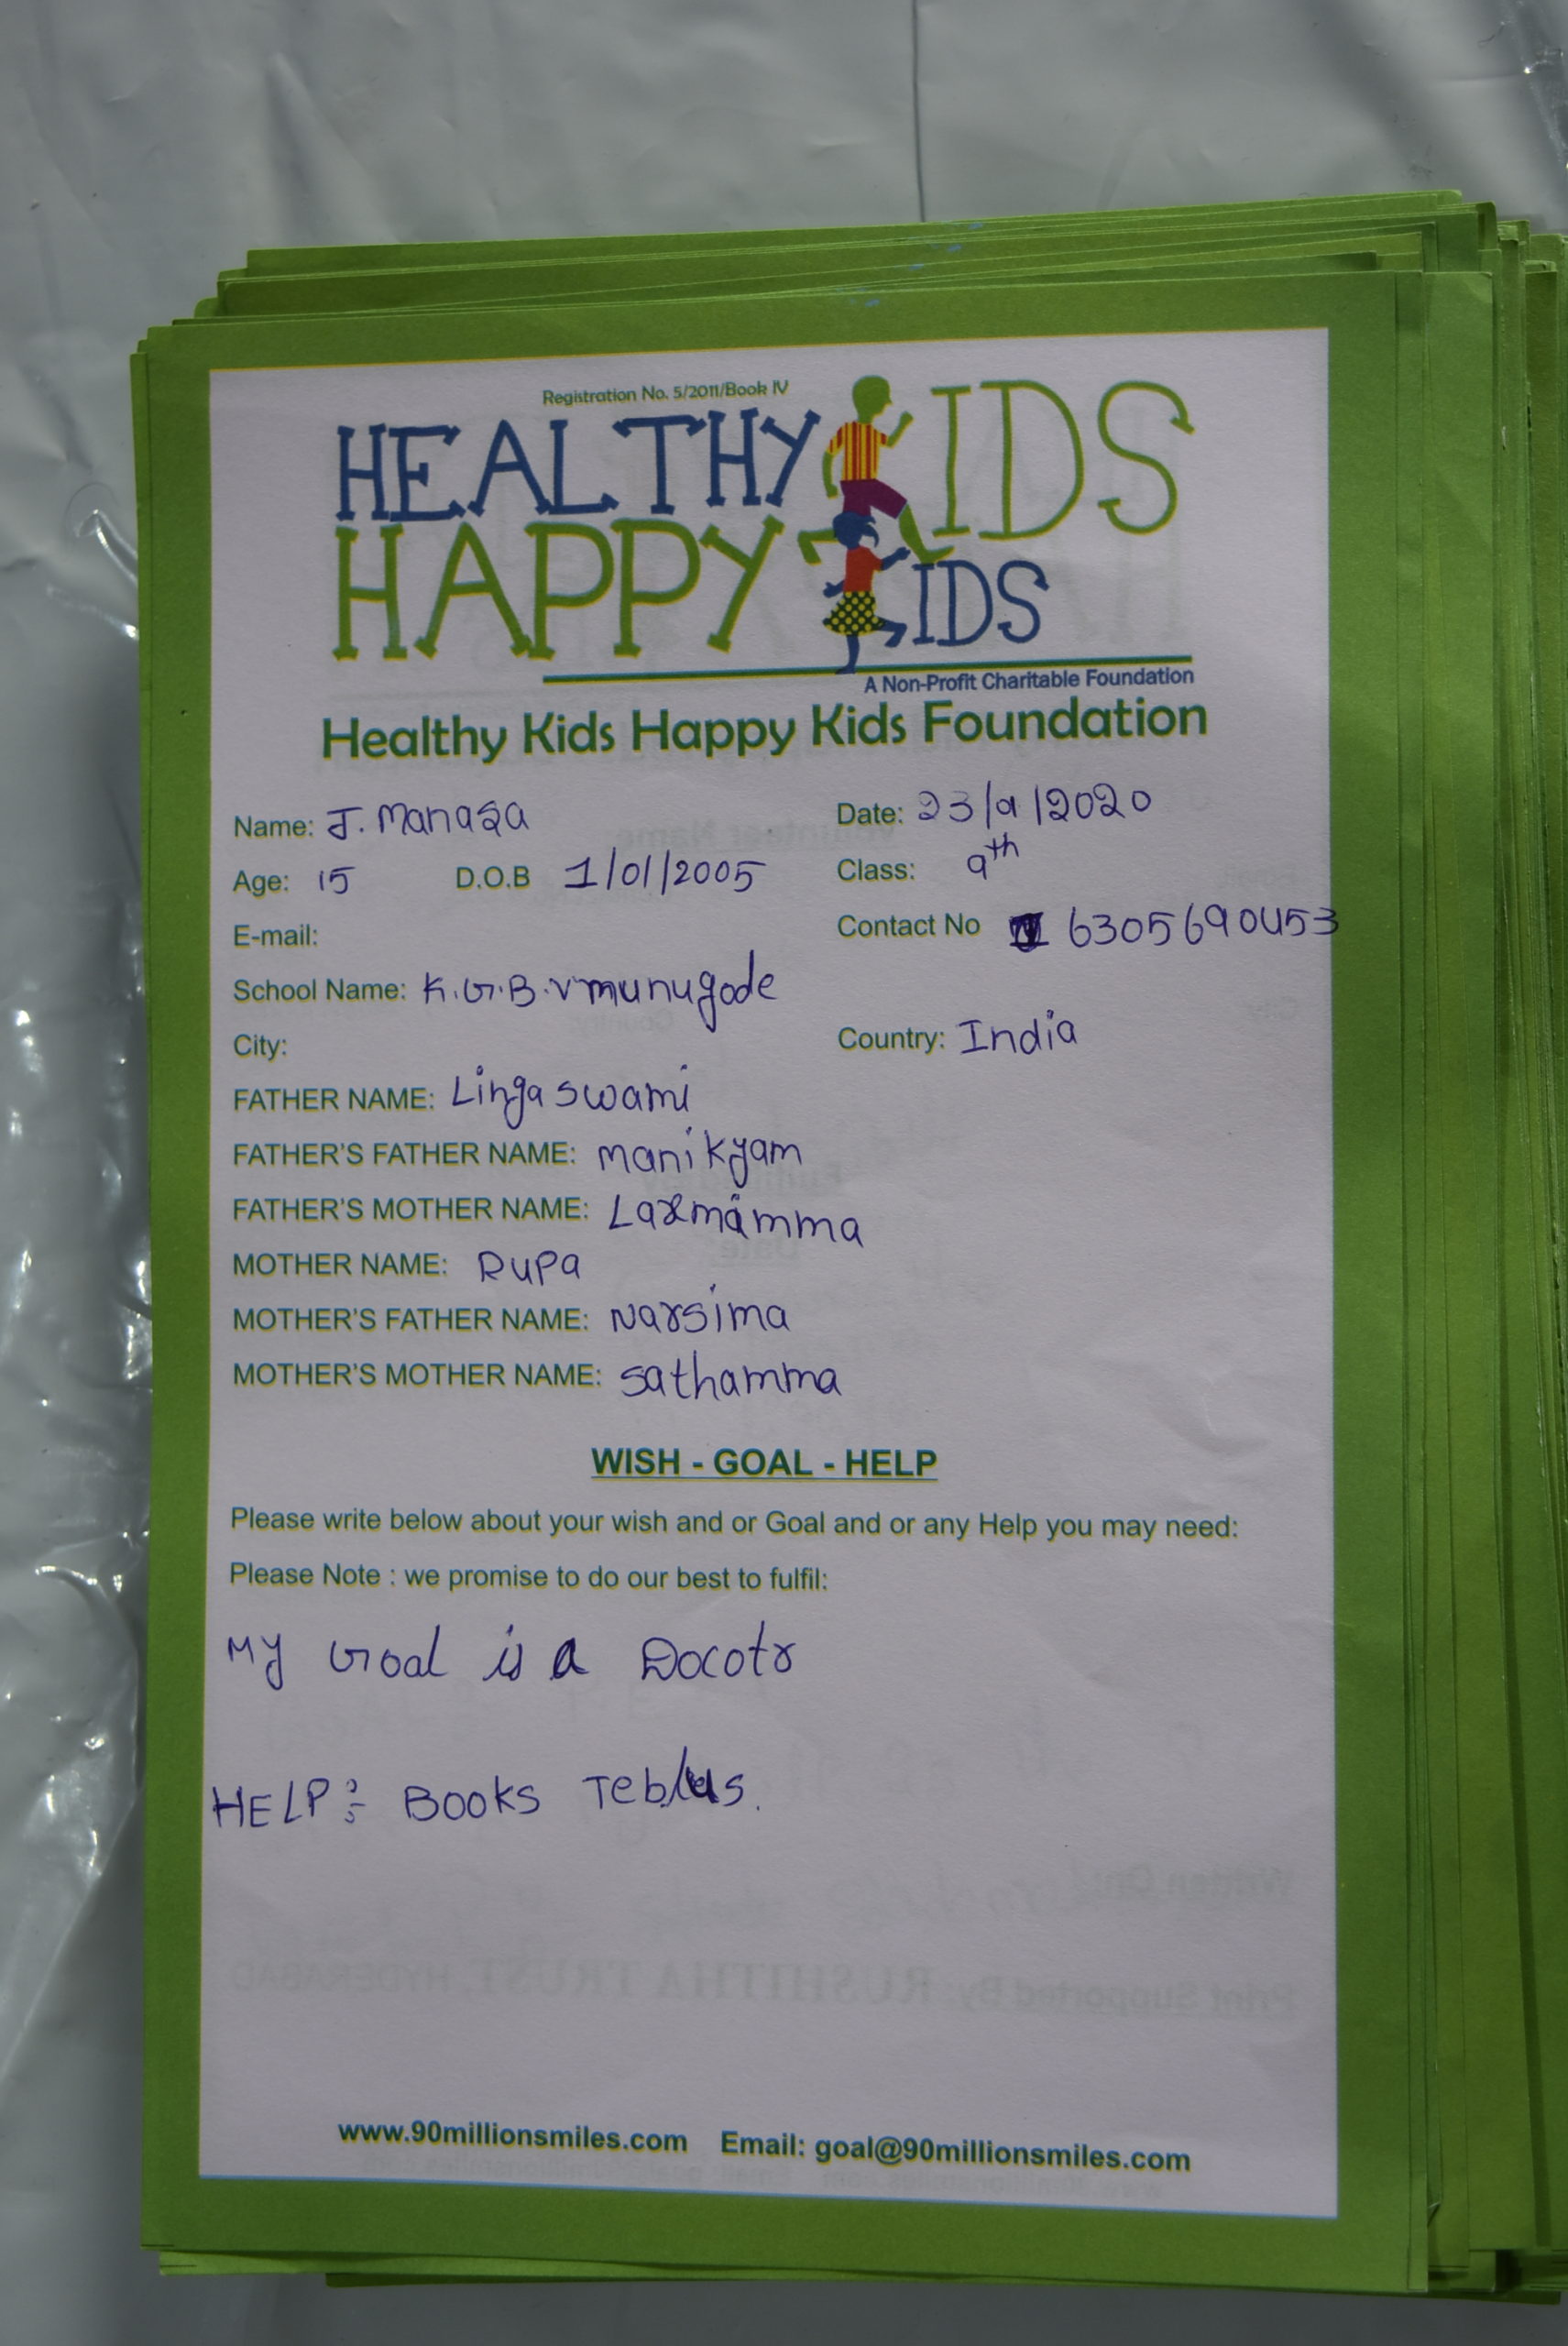 Registration No. 5/2011/Book IV
HEALTHY KIDS
HAPPY KIDS
A Non-Profit Charitable Foundation
Healthy Kids Happy Kids Foundation
Name: J. Manasa Date: 23/9/2020
Age: 15 D.O.B 1/01/2005 Class: 9th
E-mail: Contact No 6305690453
School Name: K.G.B.V munugode
City: Country: India
FATHER NAME: Linga swami
FATHER'S FATHER NAME: manikyam
FATHER'S MOTHER NAME: Laxmamma
MOTHER NAME: Rupa
MOTHER'S FATHER NAME: Narsima
MOTHER'S MOTHER NAME: sathamma
WISH - GOAL - HELP
Please write below about your wish and or Goal and or any Help you may need:
Please Note : we promise to do our best to fulfil:
My Goal is a Docotr
HELP : BOOKS
Print Supported By: RUSHITHA TRUST, HYDERABAD
www.90millionsmiles.com Email: goal@90millionsmiles.com